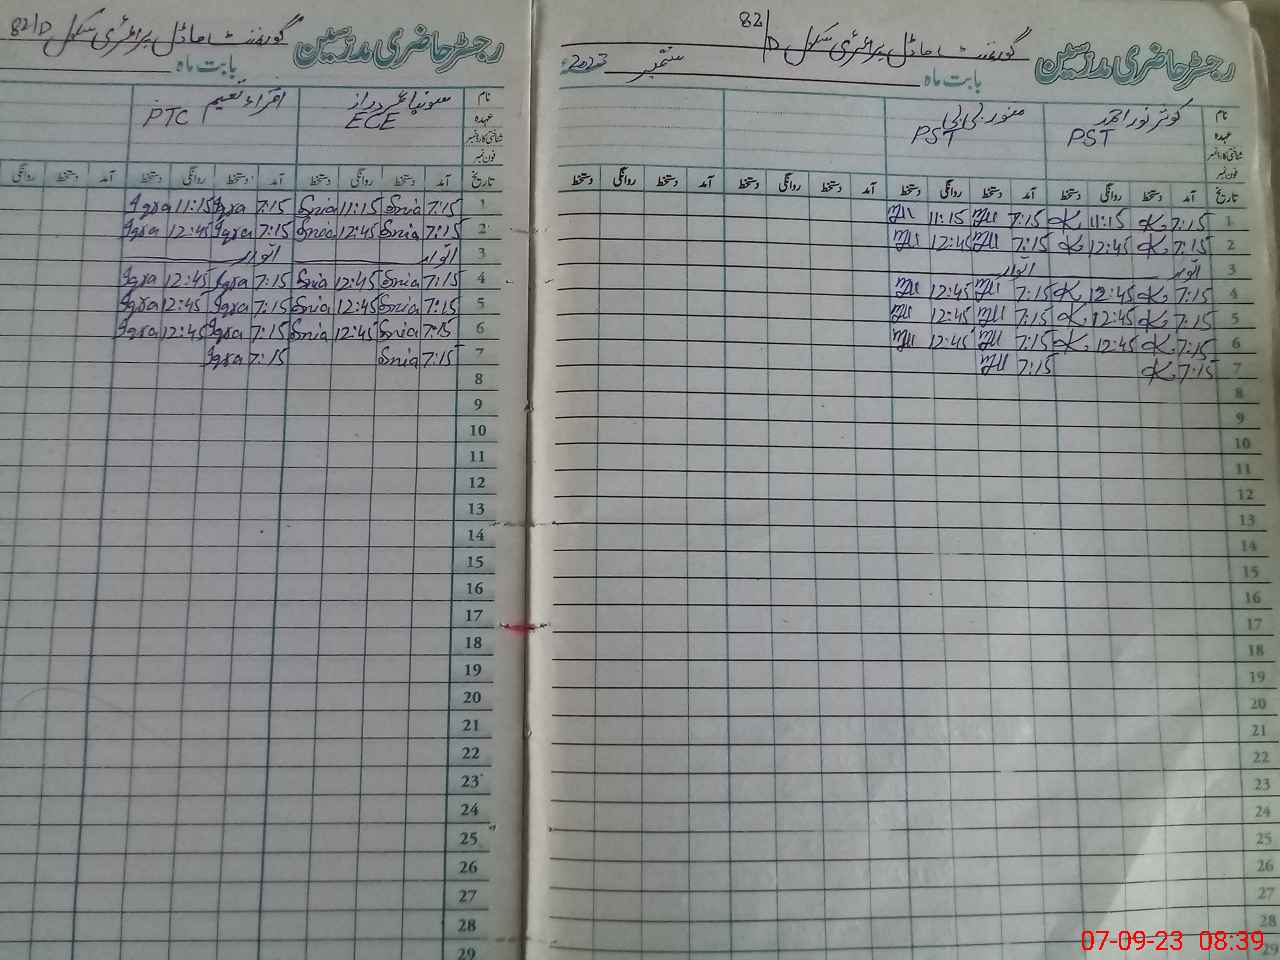 رجسٹر حاضری مدرسین گورنمنٹ ماڈل پرائمری سکول 82/D
بابت ماہ ستمبر 2023ء
نام کوثر نور احمد منور بی بی
عہدہ PST PST
شناختی کارڈ نمبر
فون نمبر
تاریخ آمد دستخط روانگی دستخط آمد دستخط روانگی دستخط آمد دستخط روانگی دستخط آمد دستخط روانگی دستخط
1 7:15 K 11:15 K 7:15 11:15
2 7:15 K 12:45 K 7:15 12:45
3 اتوار اتوار
4 7:15 K 12:45 K 7:15 12:45
5 7:15 K 12:45 K 7:15 12:45
6 7:15 K 12:45 K 7:15 12:45
7 7:15 K 7:15
8
9
10
11
12
13
14
15
16
17
18
19
20
21
22
23
24
25
26
27
28
29
رجسٹر حاضری مدرسین گورنمنٹ ماڈل پرائمری سکول 82/D
بابت ماہ
نام سونیا عمر دراز اقراء نعیم
عہدہ ECE PTC
شناختی کارڈ نمبر
فون نمبر
تاریخ آمد دستخط روانگی دستخط آمد دستخط روانگی دستخط آمد دستخط روانگی
1 7:15 Snia 11:15 Snia 7:15 Iqra 11:15 Iqra
2 7:15 Snia 12:45 Snia 7:15 Iqra 12:45 Iqra
3 اتوار اتوار
4 7:15 Snia 12:45 Snia 7:15 Iqra 12:45 Iqra
5 7:15 Snia 12:45 Snia 7:15 Iqra 12:45 Iqra
6 7:15 Snia 12:45 Snia 7:15 Iqra 12:45 Iqra
7 7:15 Snia 7:15 Iqra
8
9
10
11
12
13
14
15
16
17
18
19
20
21
22
23
24
25
26
27
28
29
07-09-23 08:39